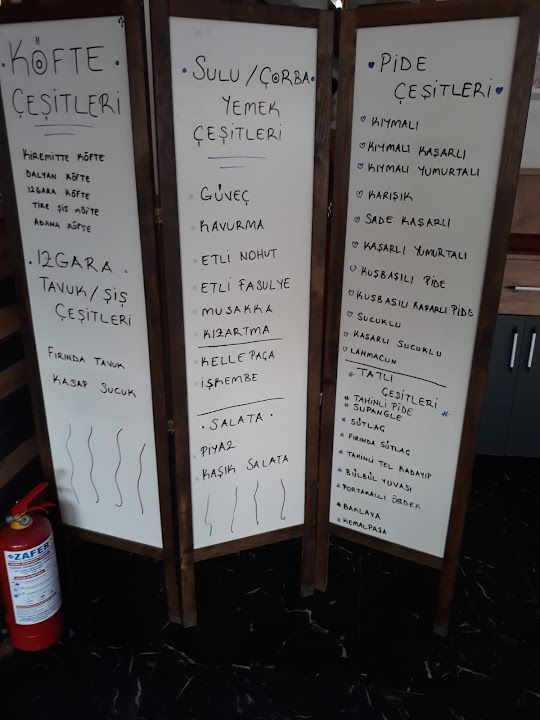 KÖFTE
ÇEŞİTLERİ
KİREMİTTE KÖFTE
DALYAN KÖFTE
IZGARA KÖFTE
TİRE ŞİŞ KÖFTE
ADANA KÖFTE
IZGARA
TAVUK/ŞİŞ
ÇEŞİTLERİ
FIRINDA TAVUK
KASAP SUCUK
SULU/ÇORBA
YEMEK
ÇEŞİTLERİ
GÜVEÇ
KAVURMA
ETLİ NOHUT
ETLİ FASULYE
MUSAKKA
KIZARTMA
KELLE PAÇA
İŞKEMBE
SALATA
PİYAZ
KAŞIK SALATA
PİDE
ÇEŞİTLERİ
KIYMALI
KIYMALI KAŞARLI
KIYMALI YUMURTALI
KARIŞIK
SADE KAŞARLI
KAŞARLI YUMURTALI
KUŞBAŞILI PİDE
KUŞBAŞILI KAŞARLI PİDE
SUCUKLU
KAŞARLI SUCUKLU
LAHMACUN
TATLI
ÇEŞİTLERİ
TAHİNLİ PİDE
SUPANGLE
SÜTLAÇ
FIRINDA SÜTLAÇ
TAHİNLİ TEL KADAYIF
BÜLBÜL YUVASI
PORTAKALLI ÖRDEK
BAKLAVA
KEMALPAŞA
ZAFER